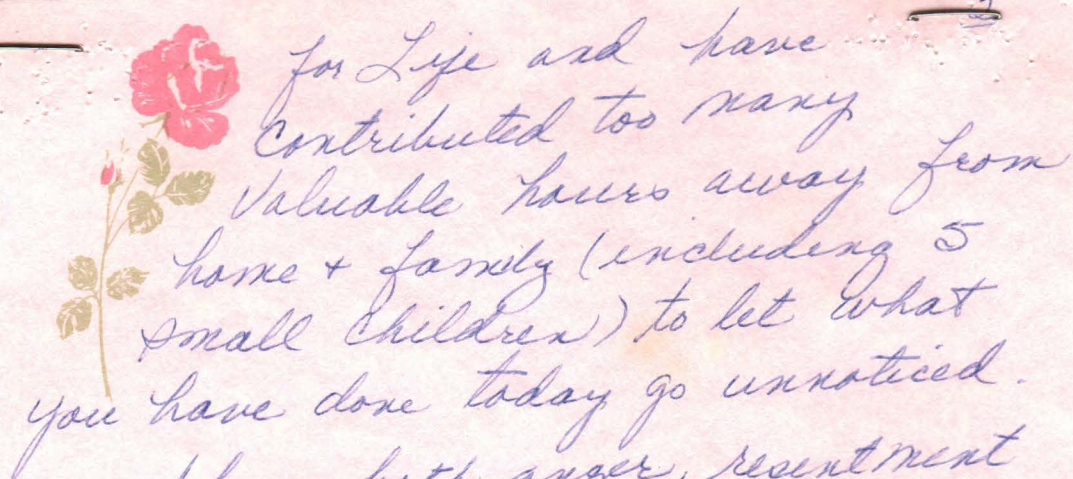 for Life and have
contributed too many
valuable hours away from
home + family (including 5
small children) to let what
you have done today go unnoticed.
both anger, resentment